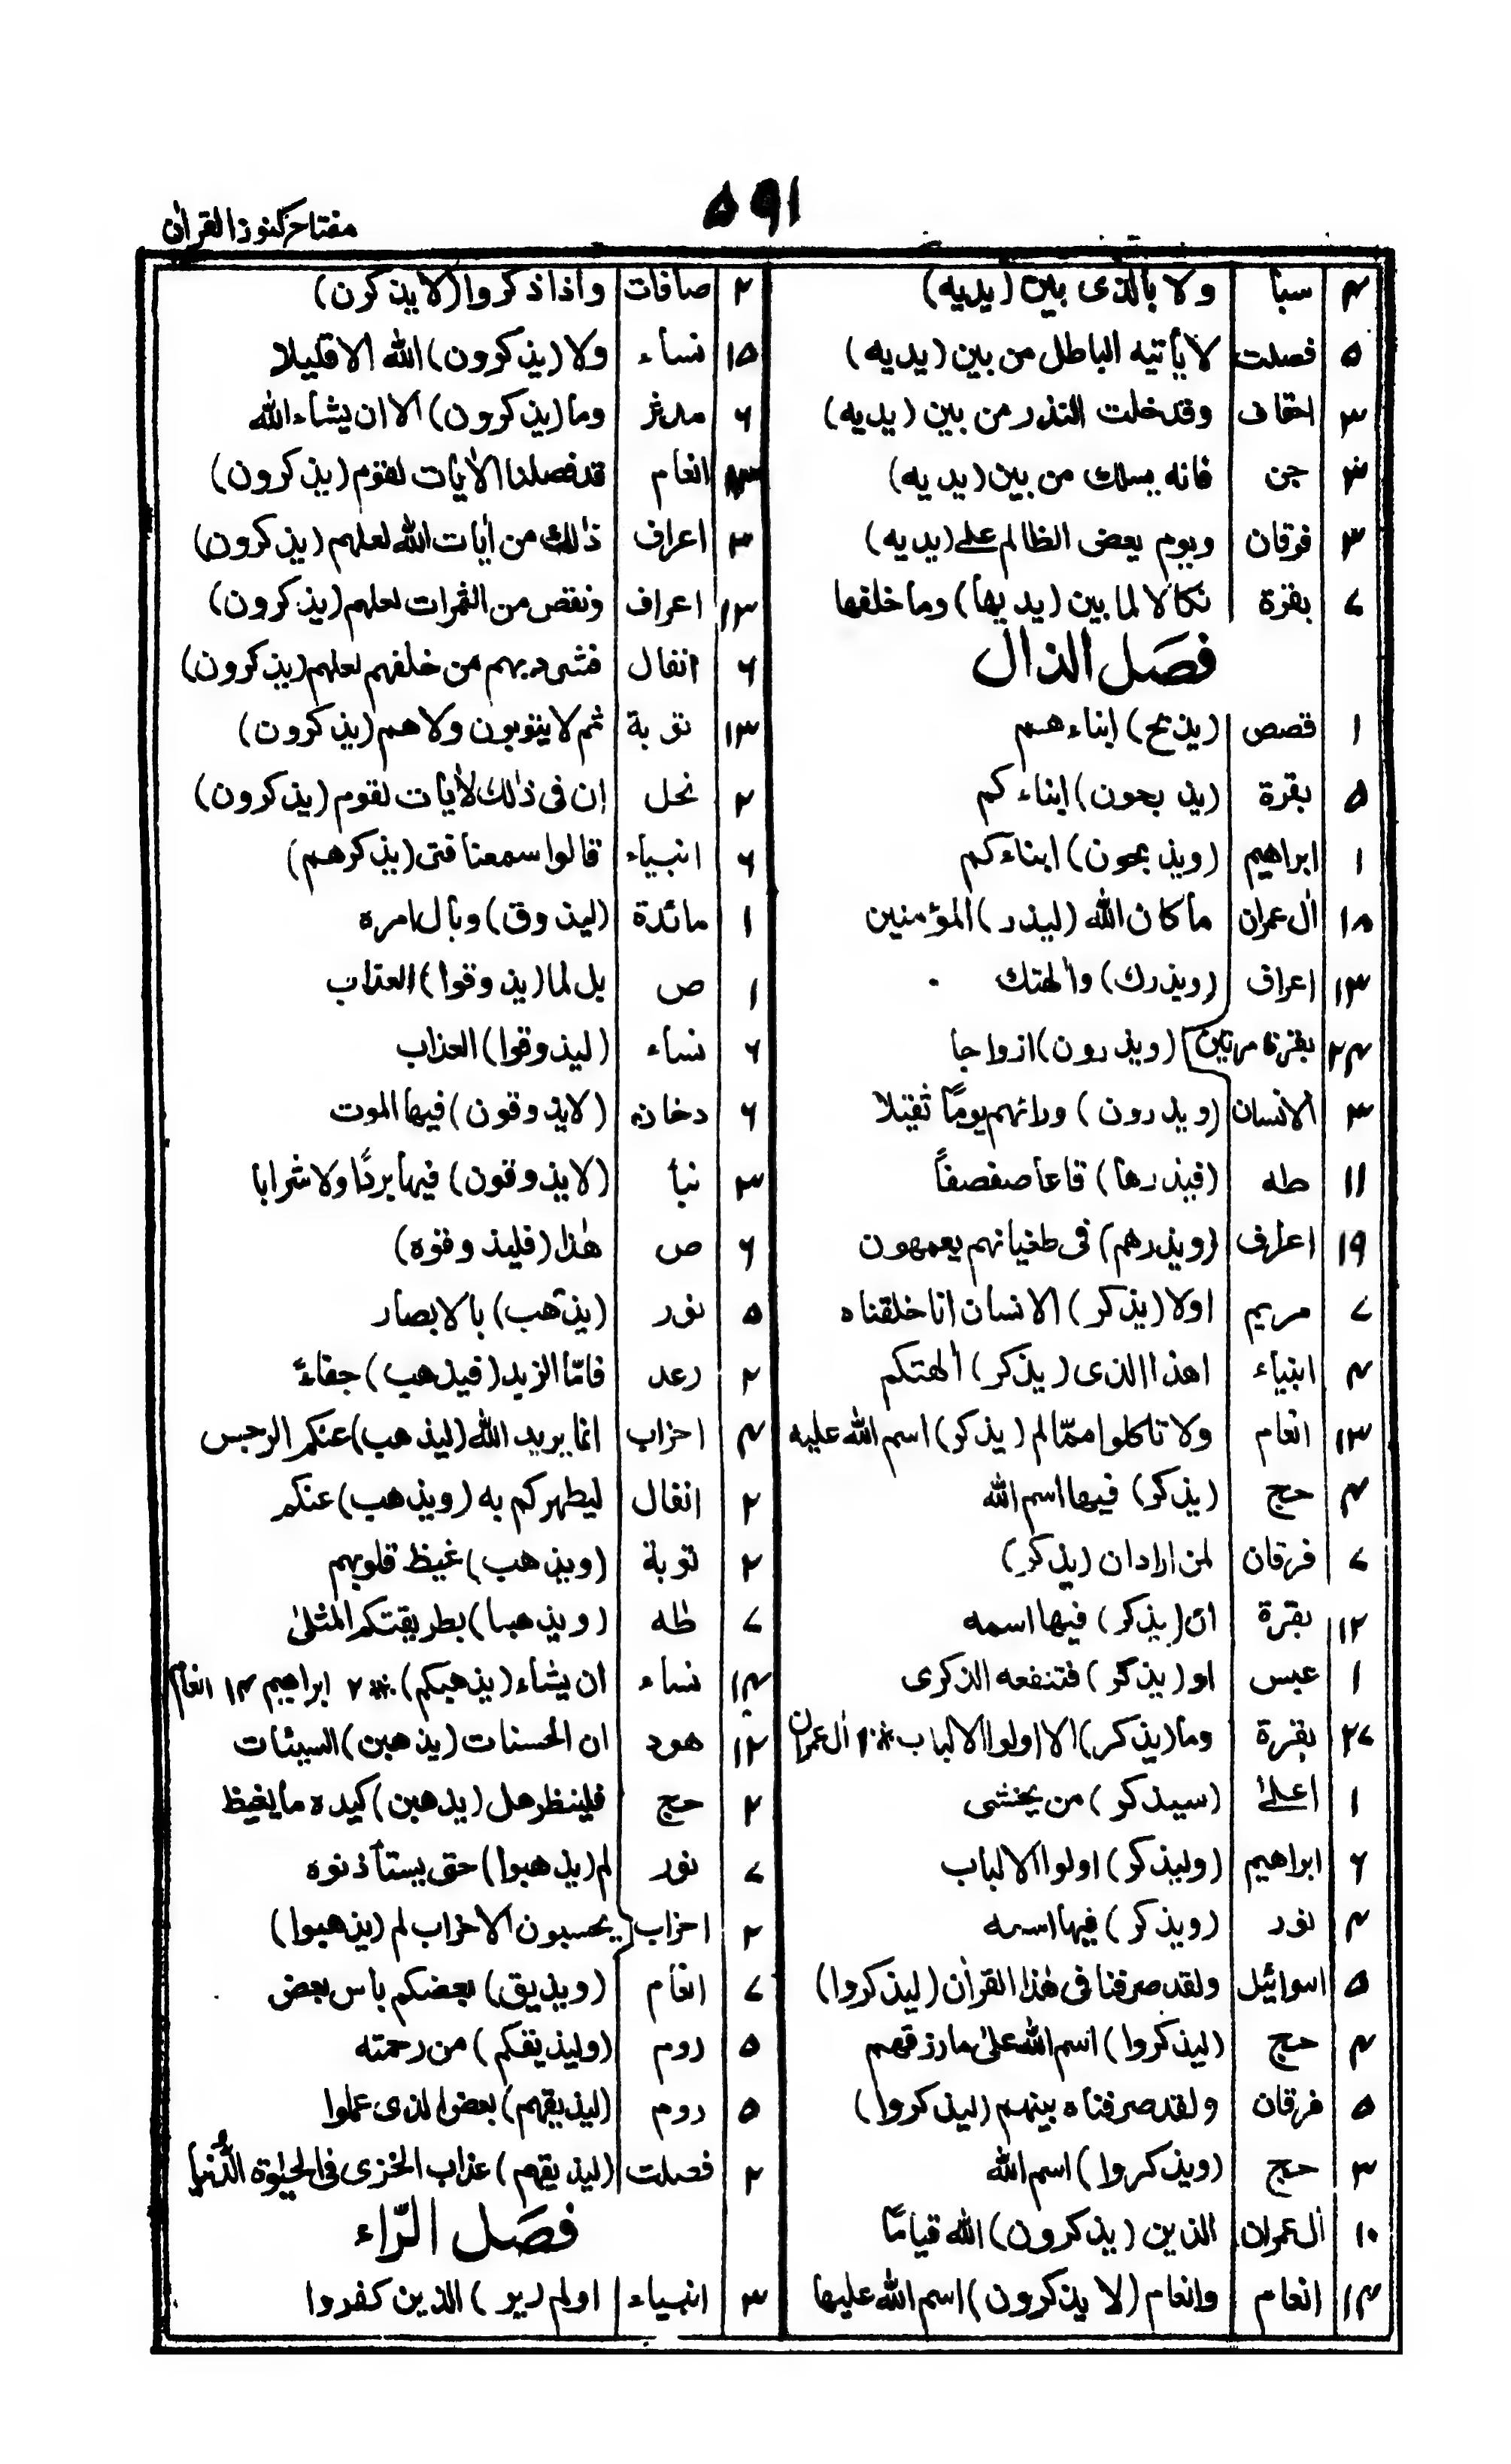 مفتاح کنوز القرآن
۵۹۱
۴ سبأ ولا بالذی بین (یدیه)
۵ فصلت لا یأتیه الباطل من بین (یدیه)
۳ احقاف وقد خلت النذر من بین (یدیه)
۲ جن فانه یسلک من بین (یدیه)
۳ فرقان ویوم یعض الظالم علی (یدیه)
۷ بقرة نکالا لما بین (یدیها) وما خلفها
فصل الذال
۱ قصص (یذبح) ابناءهم
۵ بقرة (یذبحون) ابناءکم
۱ ابراهیم (ویذبحون) ابناءکم
۱۸ اٰل عمران ما کان الله (لیذر) المؤمنین
۱۳ اعراف (ویذرک) واٰلهتک
۲۴ بقرة مرتین (ویذرون) ازواجا
۳ الانسان (ویذرون) ورائهم یومًا ثقیلا
۱۱ طه (فیذرها) قاعا صفصفًا
۱۹ اعراف (ویذرهم) فی طغیانهم یعمهون
۷ مریم اولا (یذکر) الانسان انا خلقناه
۴ انبیاء اهذا الذی (یذکر) اٰلهتکم
۱۳ انعام ولا تاکلوا ممّا لم (یذکر) اسم الله علیه
۴ حج (یذکر) فیها اسم الله
۷ فرقان لمن اراد ان (یذکر)
۱۲ بقرة ان (یذکر) فیها اسمه
۱ عبس او (یذکر) فتنفعه الذکری
۲۷ بقرة وما (یذکر) الا اولوا الالباب * اٰل عمران
۱ اعلیٰ (سیذکر) من یخشی
۶ ابراهیم (ولیذکر) اولوا الالباب
۴ نور (ویذکر) فیها اسمه
۵ اسرائیل ولقد صرفنا فی هٰذا القراٰن (لیذکروا)
۴ حج (لیذکروا) اسم الله علیٰ ما رزقهم
۵ فرقان ولقد صرفناه بینهم (لیذکروا)
۳ حج (ویذکروا) اسم الله
۱۰ اٰل عمران الذین (یذکرون) الله قیامًا
۱۴ انعام وانعام (لا یذکرون) اسم الله علیها
۲ صافات واذا ذکروا (لا یذکرن)
۱۵ نساء ولا (یذکرون) الله الا قلیلا
۶ مدثر وما (یذکرون) الا ان یشاء الله
انعام قد فصلنا الاٰیات لقوم (یذکرون)
۳ اعراف ذٰلک من اٰیات الله لعلهم (یذکرون)
۱۳ اعراف ونقص من الثمرات لعلهم (یذکرون)
۶ انفال فشرد بهم من خلفهم لعلهم (یذکرون)
۱۳ توبة ثم لا یتوبون ولا هم (یذکرون)
۲ نحل ان فی ذٰلک لاٰیات لقوم (یذکرون)
۶ انبیاء قالوا سمعنا فتی (یذکرهم)
۱ مائدة (لیذوق) وبال امره
۱ ص بل لما (یذوقوا) العذاب
۶ نساء (لیذوقوا) العذاب
۶ دخان (لایذوقون) فیها الموت
۳ نبأ (لایذوقون) فیها بردًا ولا شرابا
۶ ص هٰذا (فلیذوقوه)
۵ نور (یذهب) بالابصار
۲ رعد فامّا الزبد (فیذهب) جفاءً
۴ احزاب انما یرید الله (لیذهب) عنکم الرجس
۲ انفال لیطهرکم به (ویذهب) عنکم
۲ توبة (ویذهب) غیظ قلوبهم
۷ طٰه (ویذهبا) بطریقتکم المثلیٰ
۱۴ نساء ان یشاء (یذهبکم) * ۲ ابراهیم ۱۴ انعام
۱۲ هود ان الحسنات (یذهبن) السیئات
۲ حج فلینظر هل (یذهبن) کیده ما یغیظ
۷ نور لم (یذهبوا) حتی یستأذنوه
۲ احزاب یحسبون الاحزاب لم (یذهبوا)
۷ انعام (ویذیق) بعضکم باس بعض
۵ روم (ولیذیقکم) من رحمته
۵ روم (لیذیقهم) بعض الذی عملوا
۲ فصلت (لیذیقهم) عذاب الخزی فی الحیٰوة الدُّنیا
فصل الرّاء
۳ انبیاء اولم (یر) الذین کفروا